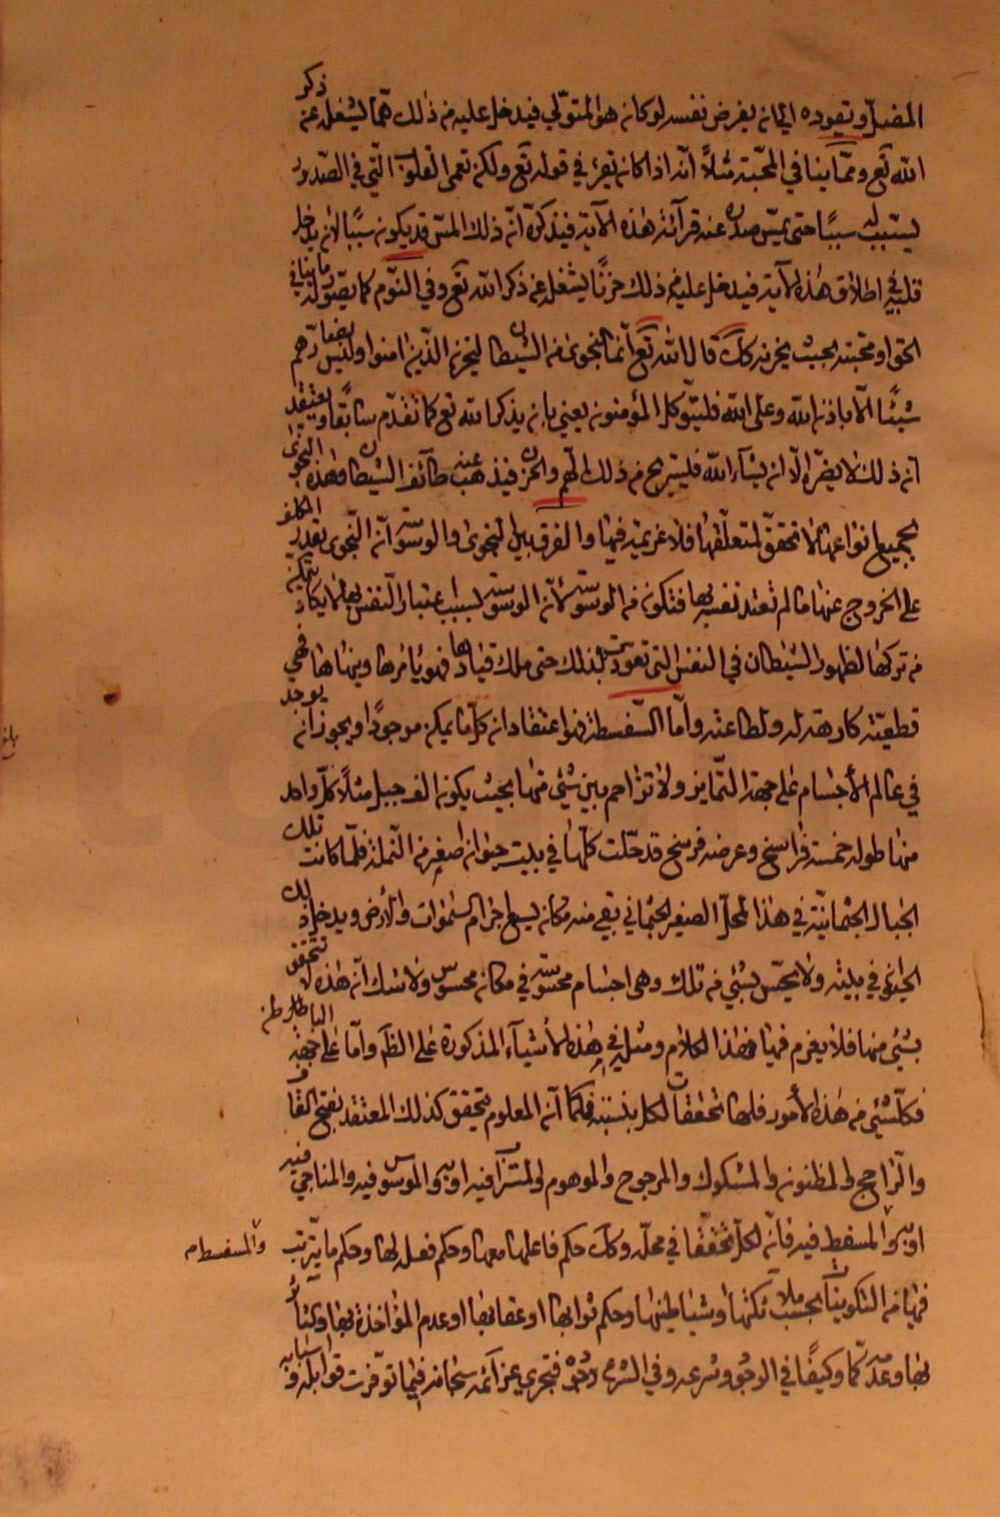 المضلّ وتعوده الى انه يفرض نفسه لو كانه هو المتولّي فيدخل عليه من ذلك همّا يشغله عن ذكر
الله تع وممّا ينافي المحبّة مثلاً انّه اذا كان يقرء في قوله تع ولكن تعمى القلوب الّتي في الصّدور
يستّبب له سببًا حتى يمسّ صدره عند قرآئة هذه الآية فيذكره انّ ذلك المسّ قد يكون سببًا لأن يدخل
قلبه في اطلاق هذه الآية فيدخل عليه من ذلك حزنًا يشغله عن ذكر الله تع وفي النّوم كما يصوّر له ما ينافي
الحقّ او محبّته بحيث يحزنه كك قال الله تع انّما النجوى من الشيطان ليحزن الّذين امنوا وليس بضآرّهم
شيئًا الّا باذن الله وعلى الله فليتوكّل المؤمنون يعني بان يذكر الله تع كما تقدّم سابقًا ويعتقد
انّ ذلك لا يضرّه الّا ان يشآء الله فليستريح من ذلك الهمّ والحزن فيذهب عنه طآئف الشيطان وهذه النجوى
بجميع انواعها لا تحقّق لمتعلّقها فلا غرم فيها والفرق بين النجوى والوسوسة انّ النّجوى يقدر المكلّف
على الخروج عنها ما لم تعتد نفسه بها فتكون من الوسوسة لأنّ الوسوسة بسبب اعتبار النّفس بها لا يكاد يتمكّن
من تركها لظهور الشيطان في النفس التي تعودت بذلك حتى ملك قيادها فهو يأمرها وينهاها فهي
قطعيّة كارهة له ولطاعته وامّا السّفسطة فهو اعتقاد ان كلّما يمكن موجودًا ويجوز انه يوجد
في عالم الأجسام على جهة التّمايز ولا تزاحم بين شئ منها بحيث يكون الف جبل مثلًا كلّ واحد
منها طوله خمسة فراسخ وعرضه فرسخ قد حلّت كلّها في بيت حيوان اصغر من النّملة فلمّا كانت تلك
الجبال الجثمانيّة في هذا المحلّ الصغير الجثماني بقي منه مكان يسع اجرام السّموات والأرض ويدخل ذلك
الحيوان في بيته ولا يحسّ بشئ من تلك وهي اجسام محسوسة في مكان محسوس ولا شك انّ هذه لا تتحقّق
بشئ منها فلا يغرم فيها فهذا الكلام ومثله في هذه الأشيآء المذكورة على الظّ وامّا على جهة الباطن
فكلّ شئ من هذه الأمور فلها تحققات لكل بنسبته فكما انّ المعلوم متحقق كذلك المعتقد بفتح القاف
والرّاجح والمظنون والمشكوك والمرجوح والموهوم والمتزا فيه او به والموسوس فيه والمناجي فيه
او به والمسفسط فيه فانّه لكلّ تحقّقًا في محلّه وكك حكم فاعلها معها وحكم فعله لها وحكم ما يترتب
والمسفسط م
فيها من التكوينات بحسب ملائكتها وشياطينها وحكم ثوابها او عقابها او عدم المؤاخذة بها وتتأثر
بها وعدّته كمّا وكيفًا في الوجود وشرعه وفي الشرع وجوده فتجري عزائمه سبحانه فيما توفّرت قوابله واسبابه
بلغ